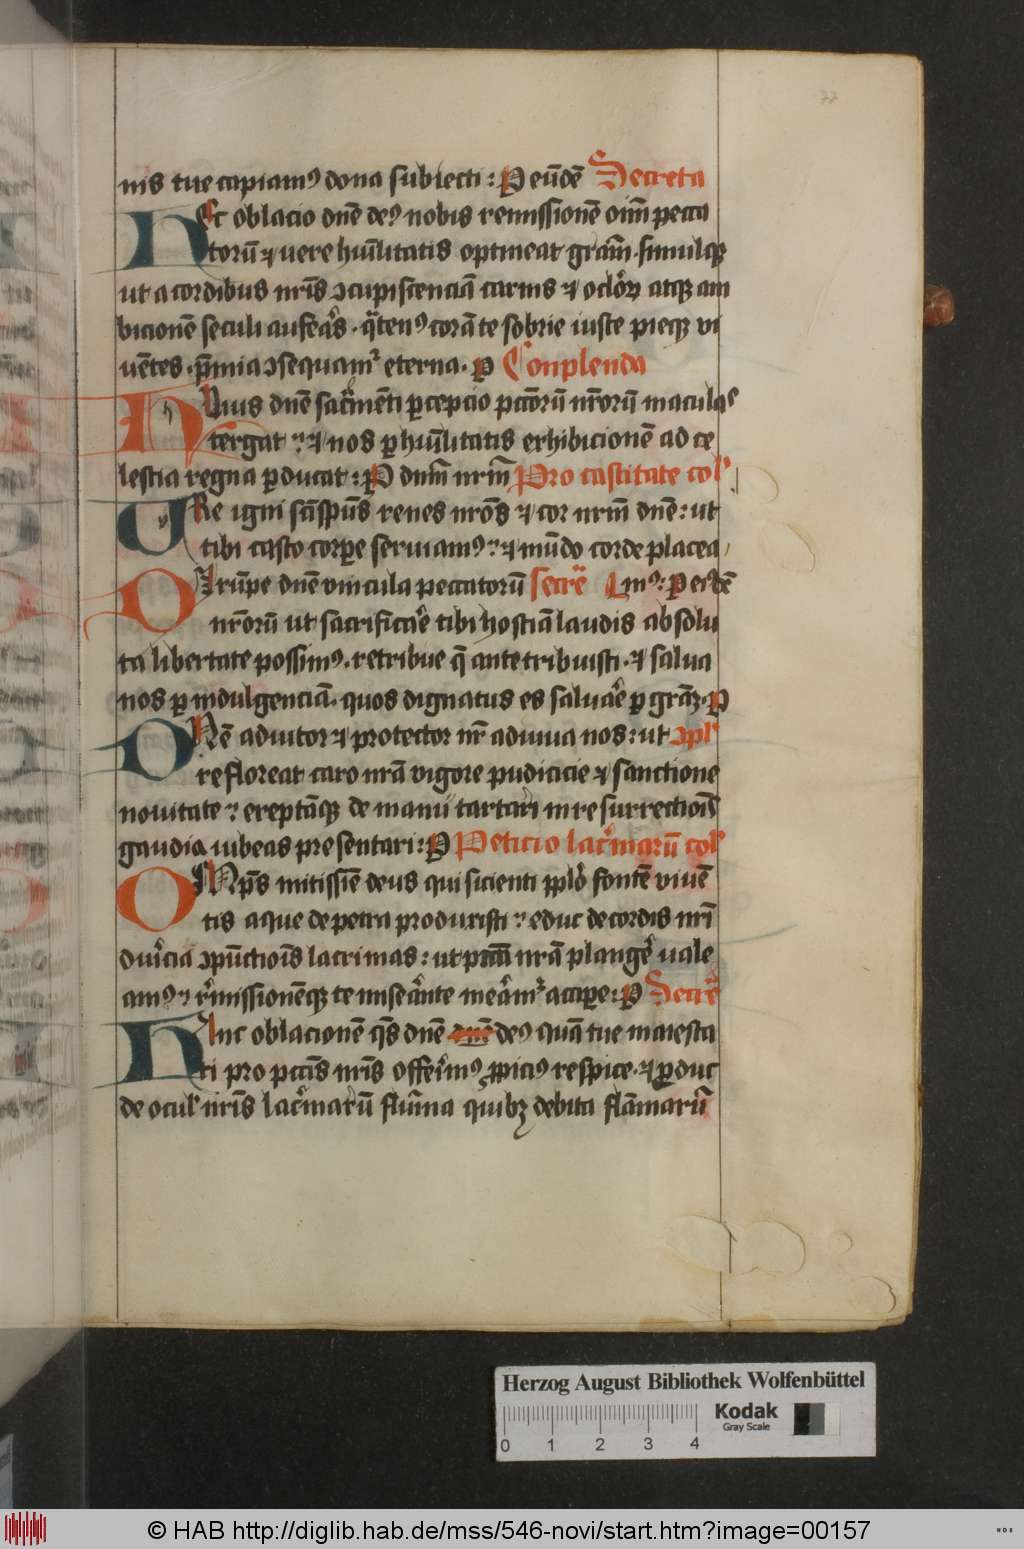 77
nis tue capiamꝰ dona subiecti : P eūdē Secreta
HEc oblacio dn̄e deꝰ nobis remissionē oīm pecca
torū ⁊ uere hūilitatis optineat grām . simulqꝫ
ut a cordibus nr̄is ↄcupiscenciā carnis ⁊ oclōꝝ atqꝫ am
bicionē seculi auferas . q̄tenꝰ corā te sobrie iuste pieqꝫ vi
uētes . p̄mia ↄsequamur eterna . P Conplenda
HUius dn̄e sacͬmēti ꝑcepcio pctōrū nr̄orū maculas
tergat : ⁊ nos ꝑ hūilitatis exhibicionē ad ce
lestia regna ꝑducat : P dnm̄ nrm̄ Pro castitate col'
URe igni sācti spūs renes nrōs ⁊ cor nrm̄ dn̄e : ut
tibi casto corꝑe seruiamꝰ : ⁊ mūdo corde placea
DIrūpe dn̄e vincula peccatorū secrē mꝰ : P eiusdē
nr̄orū ut sacrificare tibi hostiā laudis absolu
ta libertate possimꝰ . retribue q̄ ante tribuisti . ⁊ salua
nos ꝑ indulgenciā . quos dignatus es saluare ꝑ grām . P
DNē adiutor ⁊ protector nr̄ adiuua nos : ut ↄpl'
refloreat caro nrā vigore pudicicie ⁊ sanctione
nouitate : ereptāqꝫ de manu tartari in resurrectiois
gaudia iubeas presentari : P Peticio lacͬmarū col'
OMnps mitissīe deus qui sicienti pplō fontē viuē
tis aque de petra produxisti : educ de cordis nrī
duricia ↄpūctiois lacrimas : ut pctā nrā plangere uale
amꝰ : rͤmissionēqꝫ te miserante mereamur acciꝑe : P Secrē
HAnc oblacionē qs̄ dn̄e dn̄e deꝰ quā tue maiesta
ti pro pctīs nrīs offerimꝰ ꝓpiciꝰ respice . ⁊ ꝓduc
de ocul' nrīs lacͬmarū flumina quibꝫ debita flāmarū
Herzog August Bibliothek Wolfenbüttel
Kodak
Gray Scale
0 1 2 3 4
© HAB http://diglib.hab.de/mss/546-novi/start.htm?image=00157